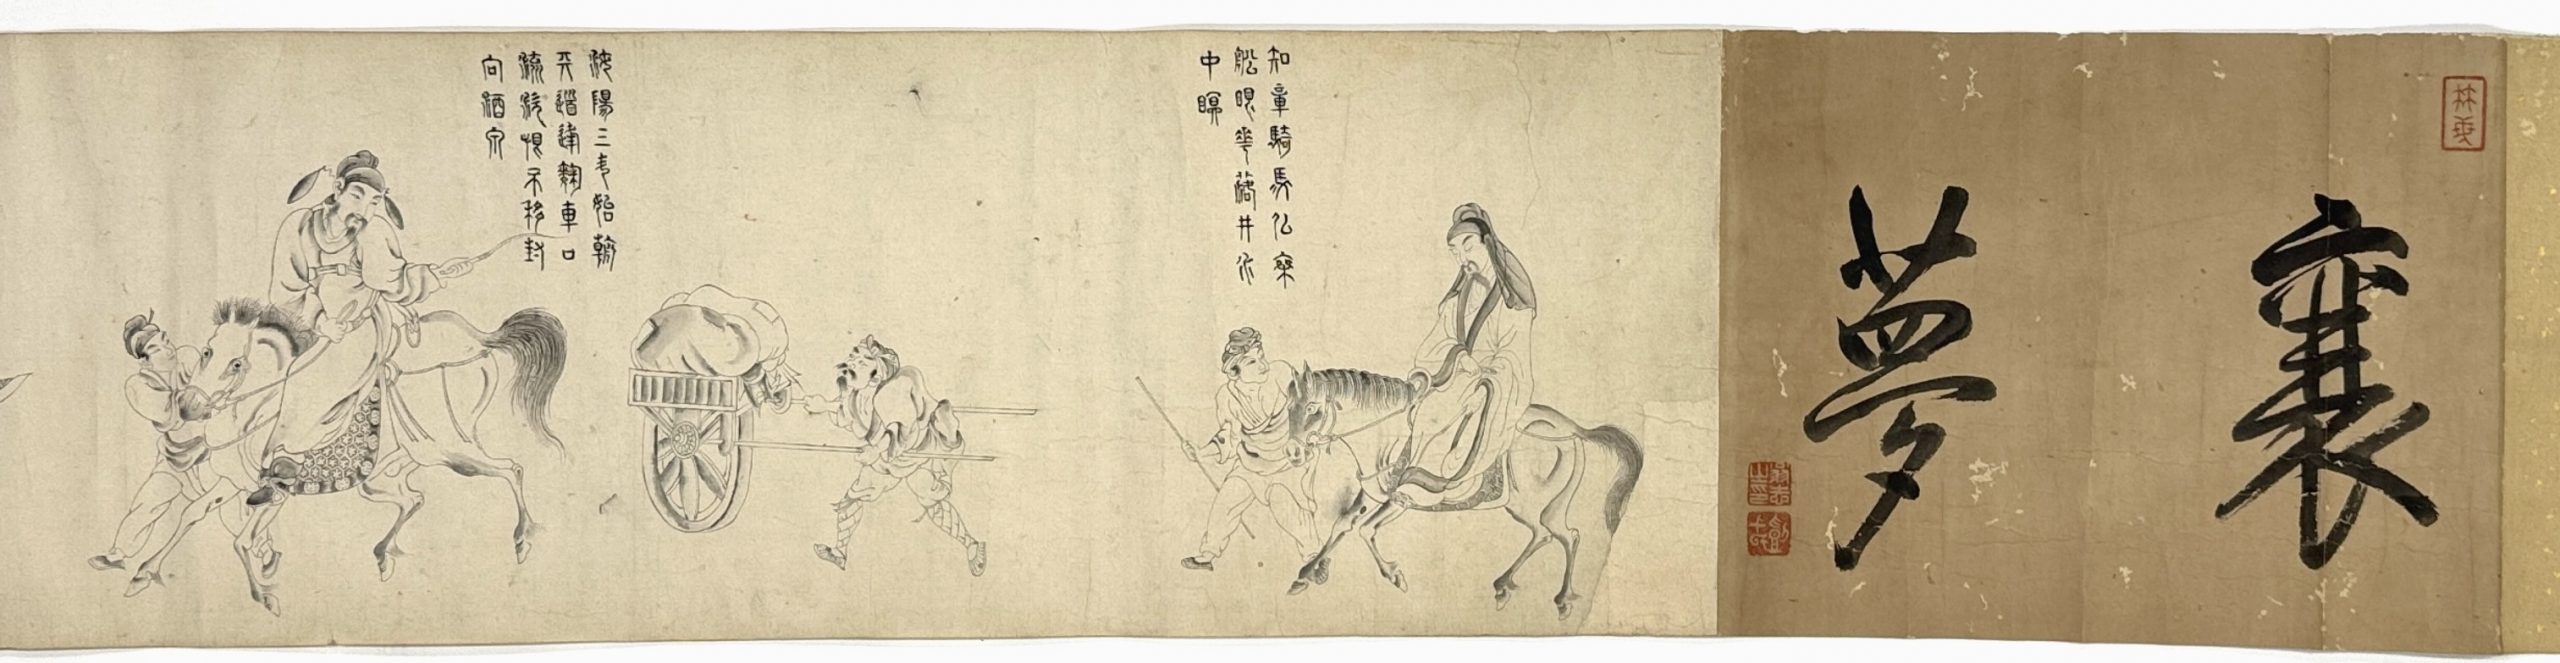 襄夢
知章騎馬似乘
船眼花落井水
中瞑
汝陽三斗始朝
天道逢麴車口
流涎恨不移封
向酒泉